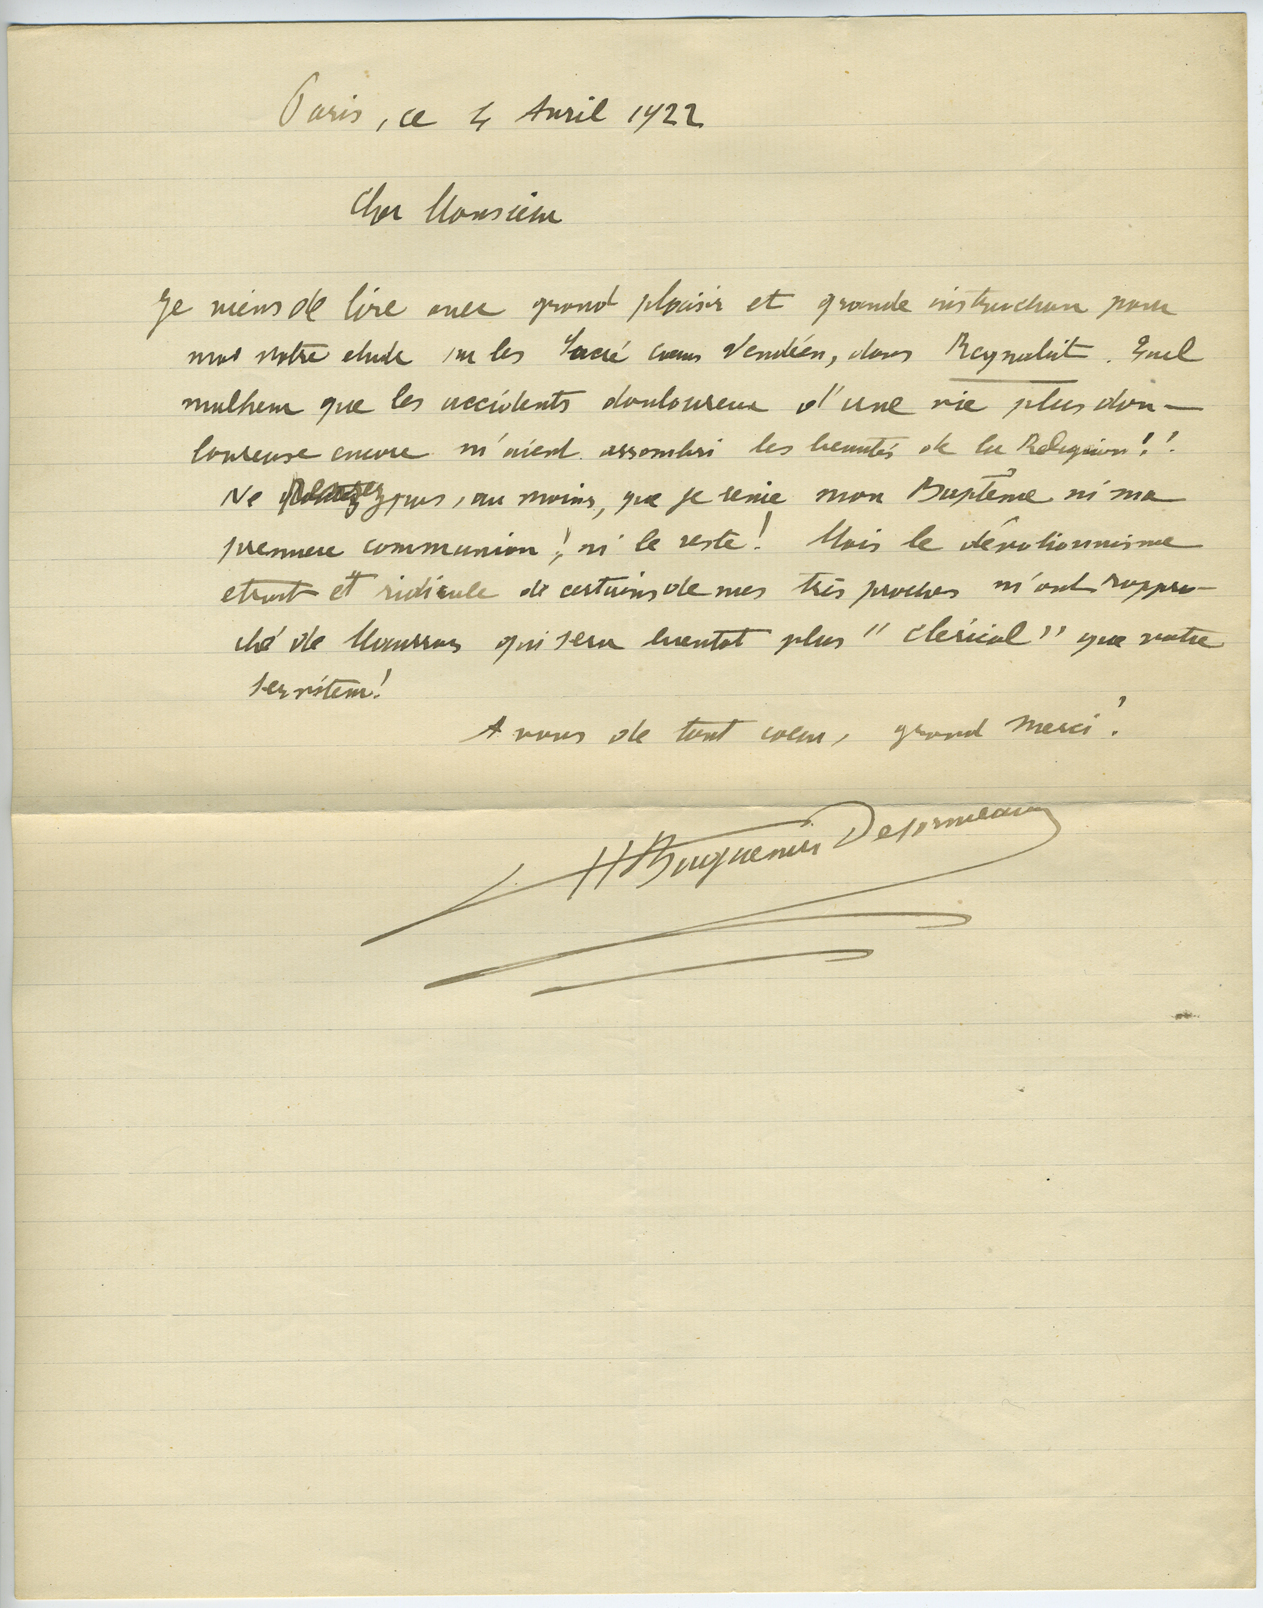 Paris, ce 4 Avril 1922
Cher Monsieur
Je viens de lire avec grand plaisir et grande instruction pour
moi votre etude sur les Sacré coeurs Vendéen, dans Regnabit. Quel
malheur que les accidents douloureux d'une vie plus dou-
loureuse encore m'aient assombri les beautés de la Religion!!
Ne pensez pas, au moins, que je renie mon Baptême ni ma
premiere communion! ni le reste! Mais le dévotionnisme
etroit et ridicule de certains de mes très proches m'ont rappro-
ché de Maurras qui sera bientot plus "clérical" que votre
serviteur!
A vous de tout coeur, grand merci!
H Bauquenin Desormeaux